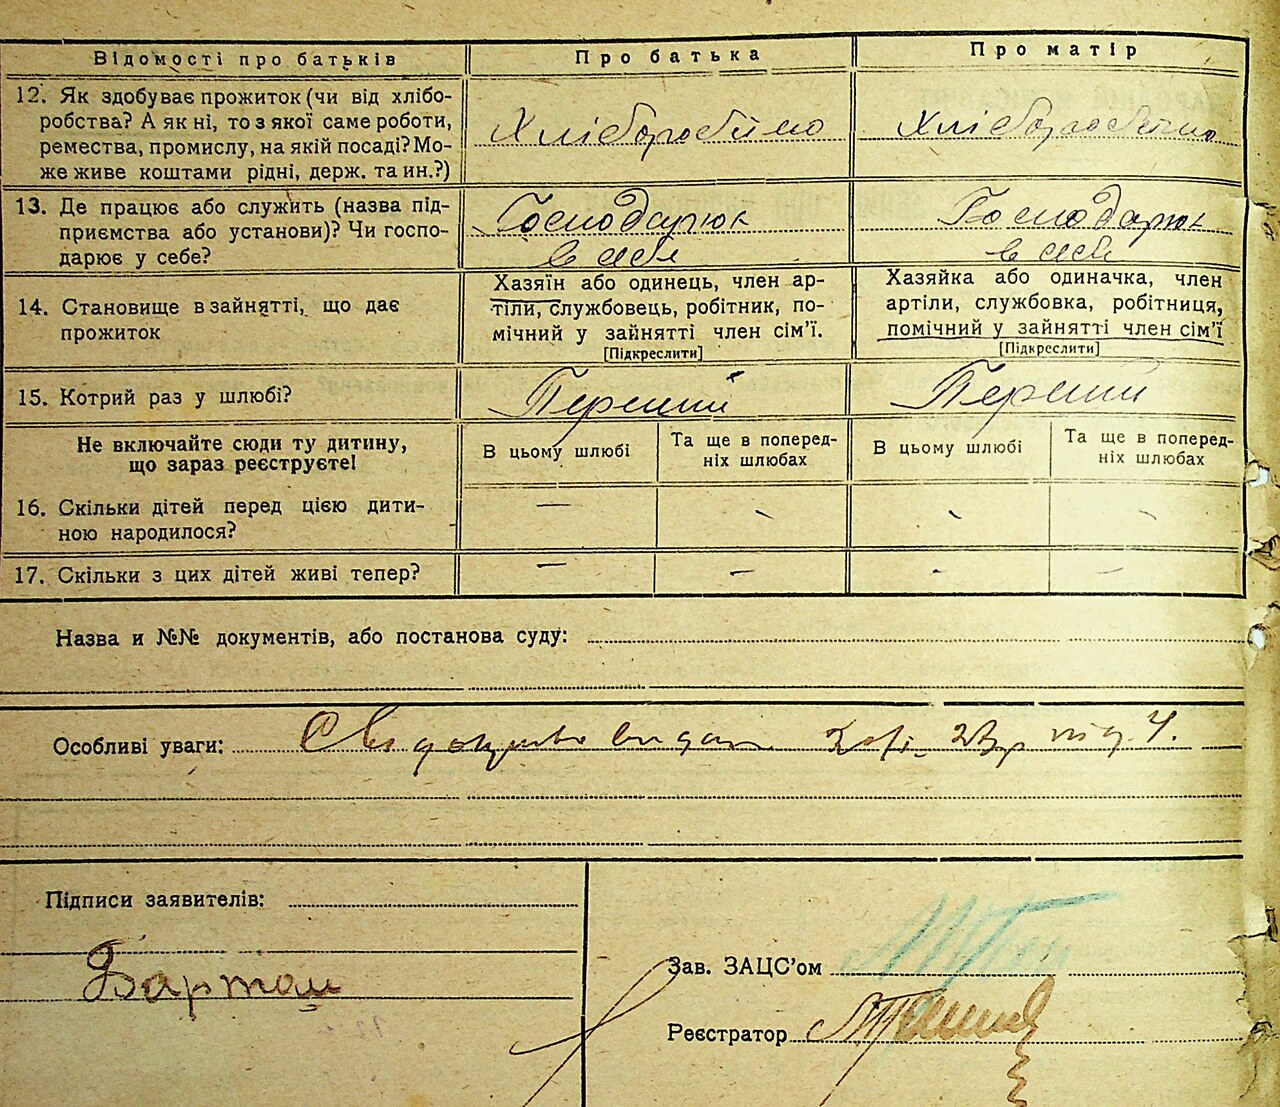 Відомості про батьків Про батька Про матір
12. Як здобуває прожиток (чи від хлібо-
робства? А як ні, то з якої саме роботи,
ремества, промислу, на якій посаді? Мо-
же живе коштами рідні, держ. та ин.?)
Хліборобство Хліборобство
13. Де працює або служить (назва під-
приємства або установи)? Чи госпо-
дарює у себе?
Господарює Господарює
в себе в себе
14. Становище в зайнятті, що дає
прожиток
Хазяїн або одинець, член ар-
тіли, службовець, робітник, по-
мічний у зайнятті член сім'ї.
[Підкреслити]
Хазяйка або одиначка, член
артіли, службовка, робітниця,
помічний у зайнятті член сім'ї
[Підкреслити]
15. Котрий раз у шлюбі? Перший Перший
Не включайте сюди ту дитину,
що зараз реєструєте!
В цьому шлюбі
Та ще в поперед-
ніх шлюбах
В цьому шлюбі
Та ще в поперед-
ніх шлюбах
16. Скільки дітей перед цією дити-
ною народилося?
— - - -
17. Скільки з цих дітей живі тепер? — — - -
Назва и №№ документів, або постанова суду:
Особливі уваги: під ч.
Підписи заявителів:
Зав. ЗАЦС'ом
Реєстратор